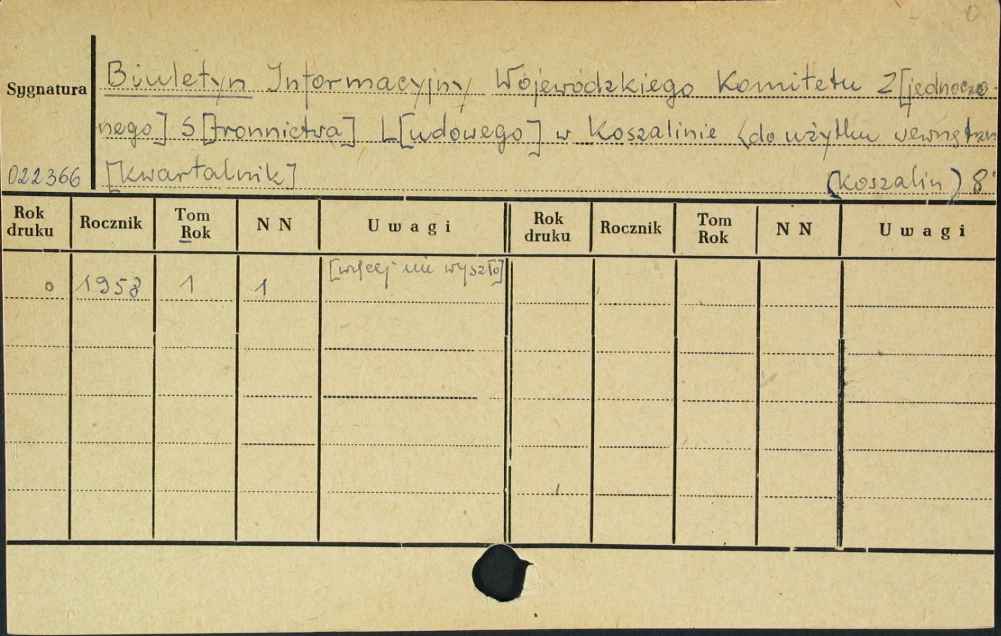 Sygnatura
Biuletyn Informacyjny Wojewódzkiego Komitetu Z[jednoczo-
nego] S[tronnictwa] L[udowego] w Koszalinie <do użytku wewnętrzn
022366 [kwartalnik] (Koszalin) 8°
Rok druku Rocznik Tom Rok N N Uwagi Rok druku Rocznik Tom Rok N N Uwagi
[więcej nie wyszło]
o 1958 1 1